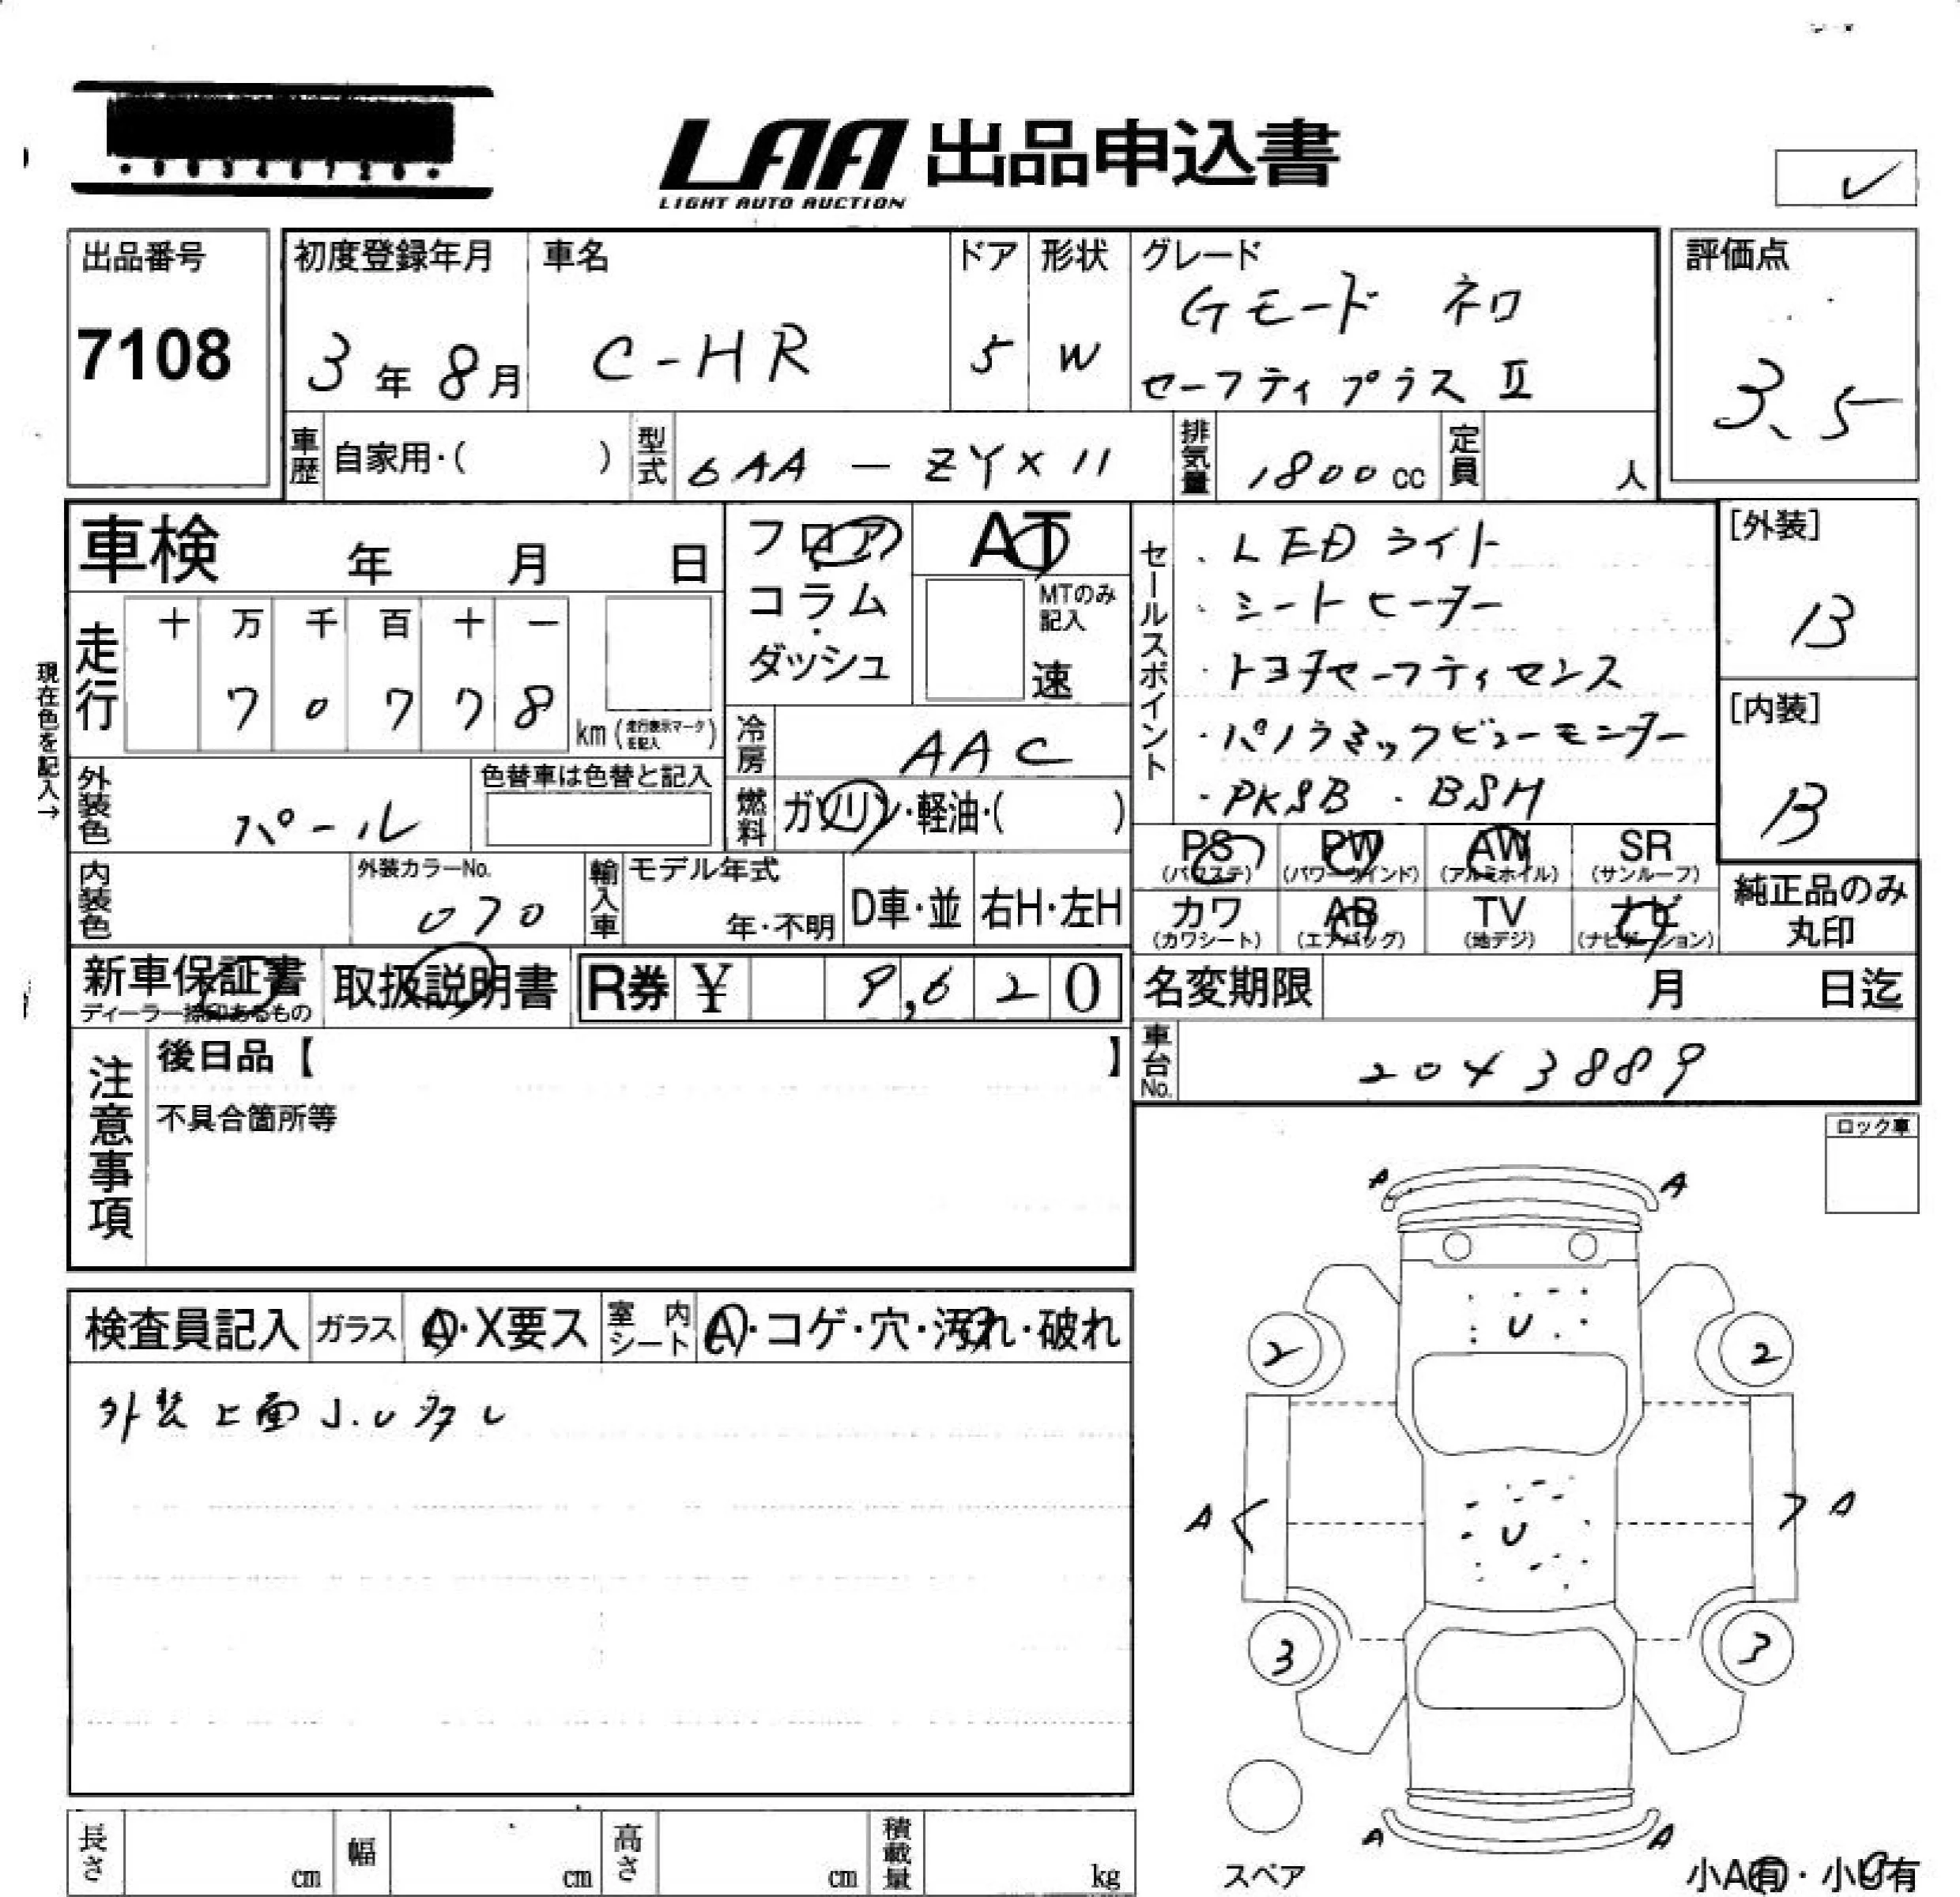 LAA 出品申込書
LIGHT AUTO AUCTION
✓
出品番号
7108
初度登録年月
3年8月
車名
C-HR
ドア
5
形状
W
グレード
Gモード ネロ
セーフティプラスⅡ
評価点
3.5
車歴 自家用・( )
型式 6AA-ZYX11
排気量 1800cc
定員 人
車検 年 月 日
走行 十 万 千 百 十 一
7 0 7 7 8
km (走行表示マークを記入)
現在色を記入→
フロア
コラム
・
ダッシュ
AT
MTのみ
記入
速
冷房 AAC
燃料 ガソリン・軽油・( )
セールスポイント
・LEDライト
・シートヒーター
・トヨタセーフティセンス
・パノラミックビューモニター
・PKSB ・BSM
[外装]
B
[内装]
B
外装色 パール
色替車は色替と記入
内装色
外装カラーNo.
070
輸入車
モデル年式
年・不明
D車・並
右H・左H
PS (パワステ)
PW (パワーウインド)
AW (アルミホイル)
SR (サンルーフ)
カワ (カワシート)
AB (エアバッグ)
TV (地デジ)
ナビ (ナビゲーション)
純正品のみ
丸印
新車保証書
ディーラー捺印あるもの
取扱説明書
R券 ¥ 9,620
名変期限 月 日迄
車台No. 2043889
注意事項
後日品【 】
不具合箇所等
ロック車
検査員記入 ガラス A・X要ス 室内シート A・コゲ・穴・汚れ・破れ
外装上面 J.U多し
A A
U
2 2
A A
U
3 3
A A
スペア
小A有・小U有
長さ cm
幅 cm
高さ cm
積載量 kg